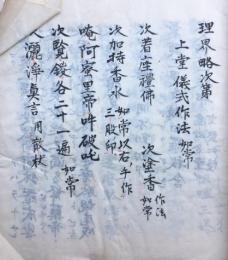 理界略次第
上堂儀式作法 如常
次著座禮佛 次塗香 作法如常
次加持香水 如常以右手作三股印
唵阿蜜里帝吽破吒
次覽鑁各二十一遍 如常
次灑淨真言用散杖